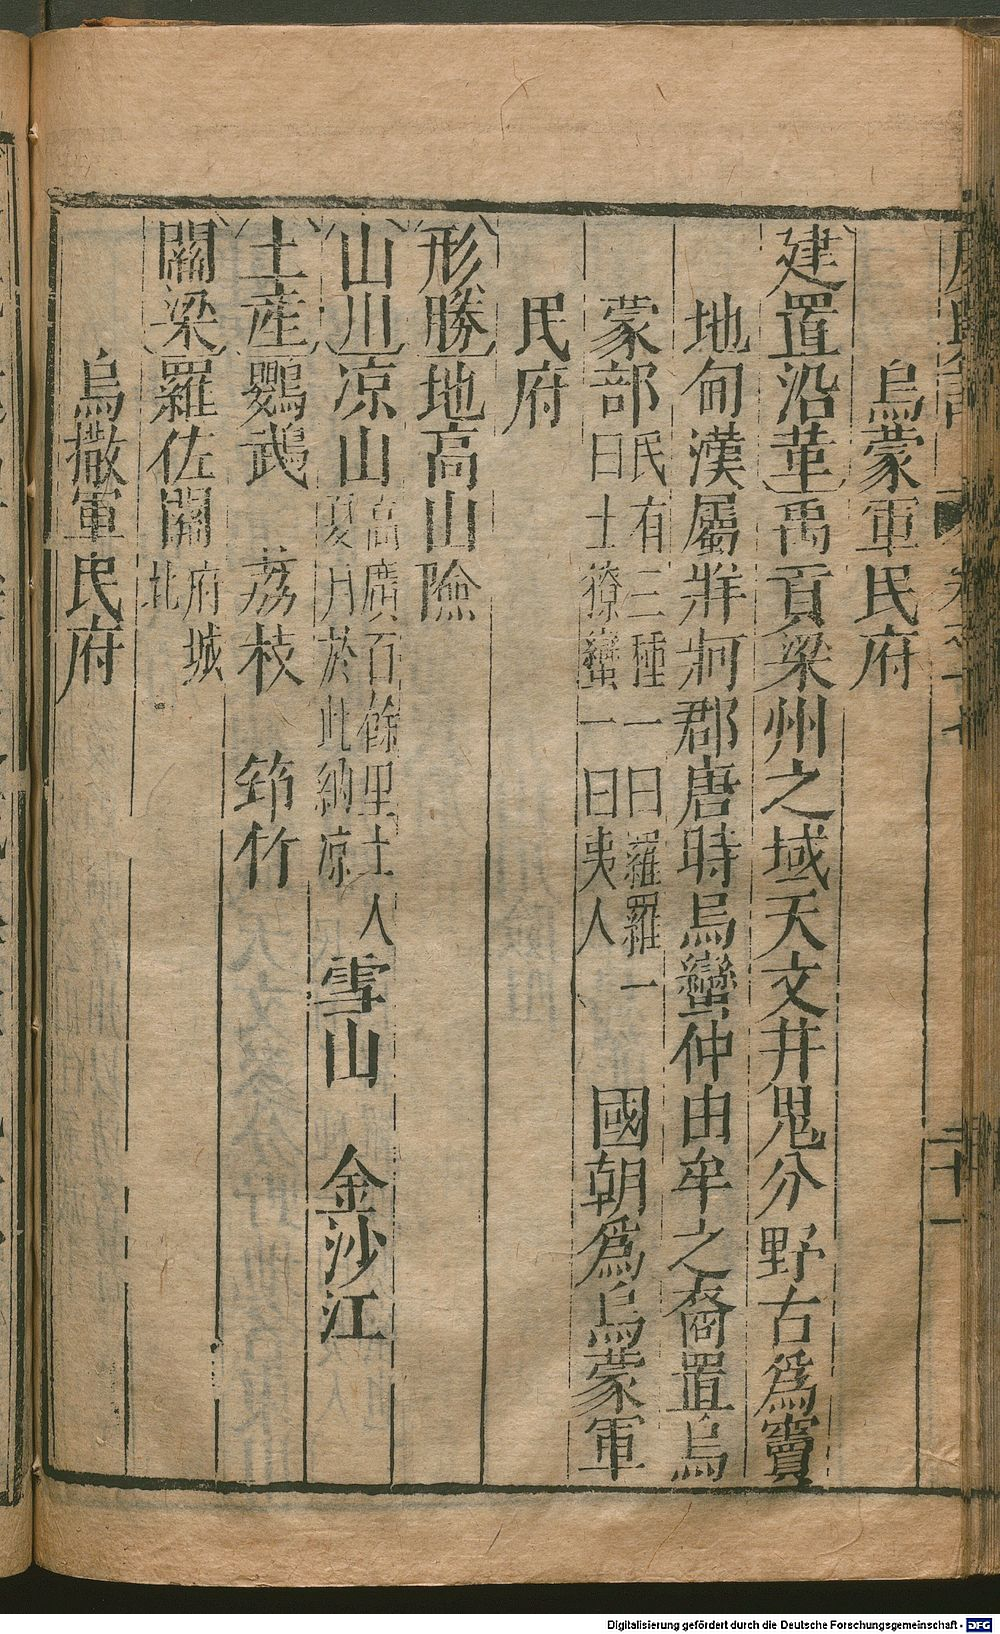 烏蒙軍民府
建置沿革禹貢梁州之域天文井鬼分野古爲竇
地甸漢屬牂牁郡唐時烏蠻仲由牟之裔置烏
蒙部民有三種一曰羅羅一曰土獠蠻一曰夷人國朝爲烏蒙軍
民府
形勝地高山險
山川凉山高廣百餘里土人夏月於此納凉雪山 金沙江
土産鸚鵡 荔枝 筇竹
關梁羅佐關府城北
烏撒軍民府
二十一
Digitalisierung gefördert durch die Deutsche Forschungsgemeinschaft - DFG